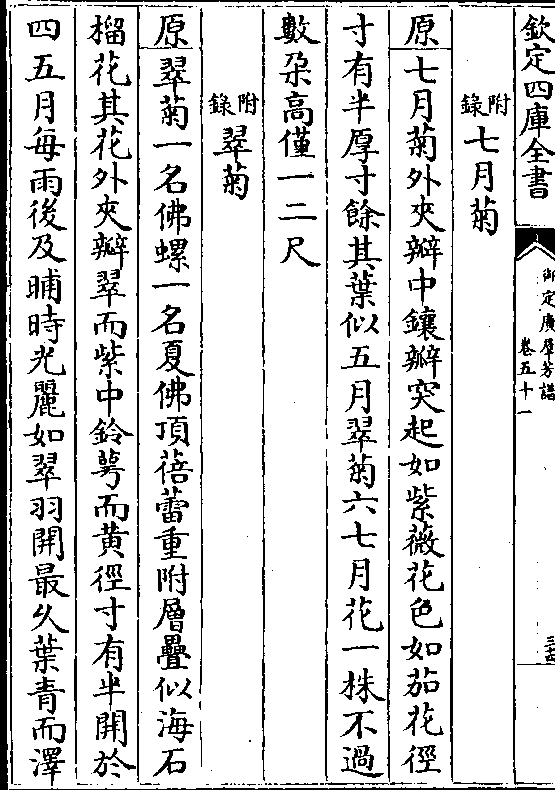 欽定四庫全書
御定廣羣芳譜
卷五十一
附錄七月菊
原七月菊外夾瓣中鑲瓣突起如紫薇花色如茄花徑
寸有半厚寸餘其葉似五月翠菊六七月花一株不過
數朶高僅一二尺
附錄翠菊
原翠菊一名佛螺一名夏佛頂蓓蕾重附層疊似海石
榴花其花外夾瓣翠而紫中鈴萼而黄徑寸有半開於
四五月每雨後及晡時光麗如翠羽開最久葉青而澤